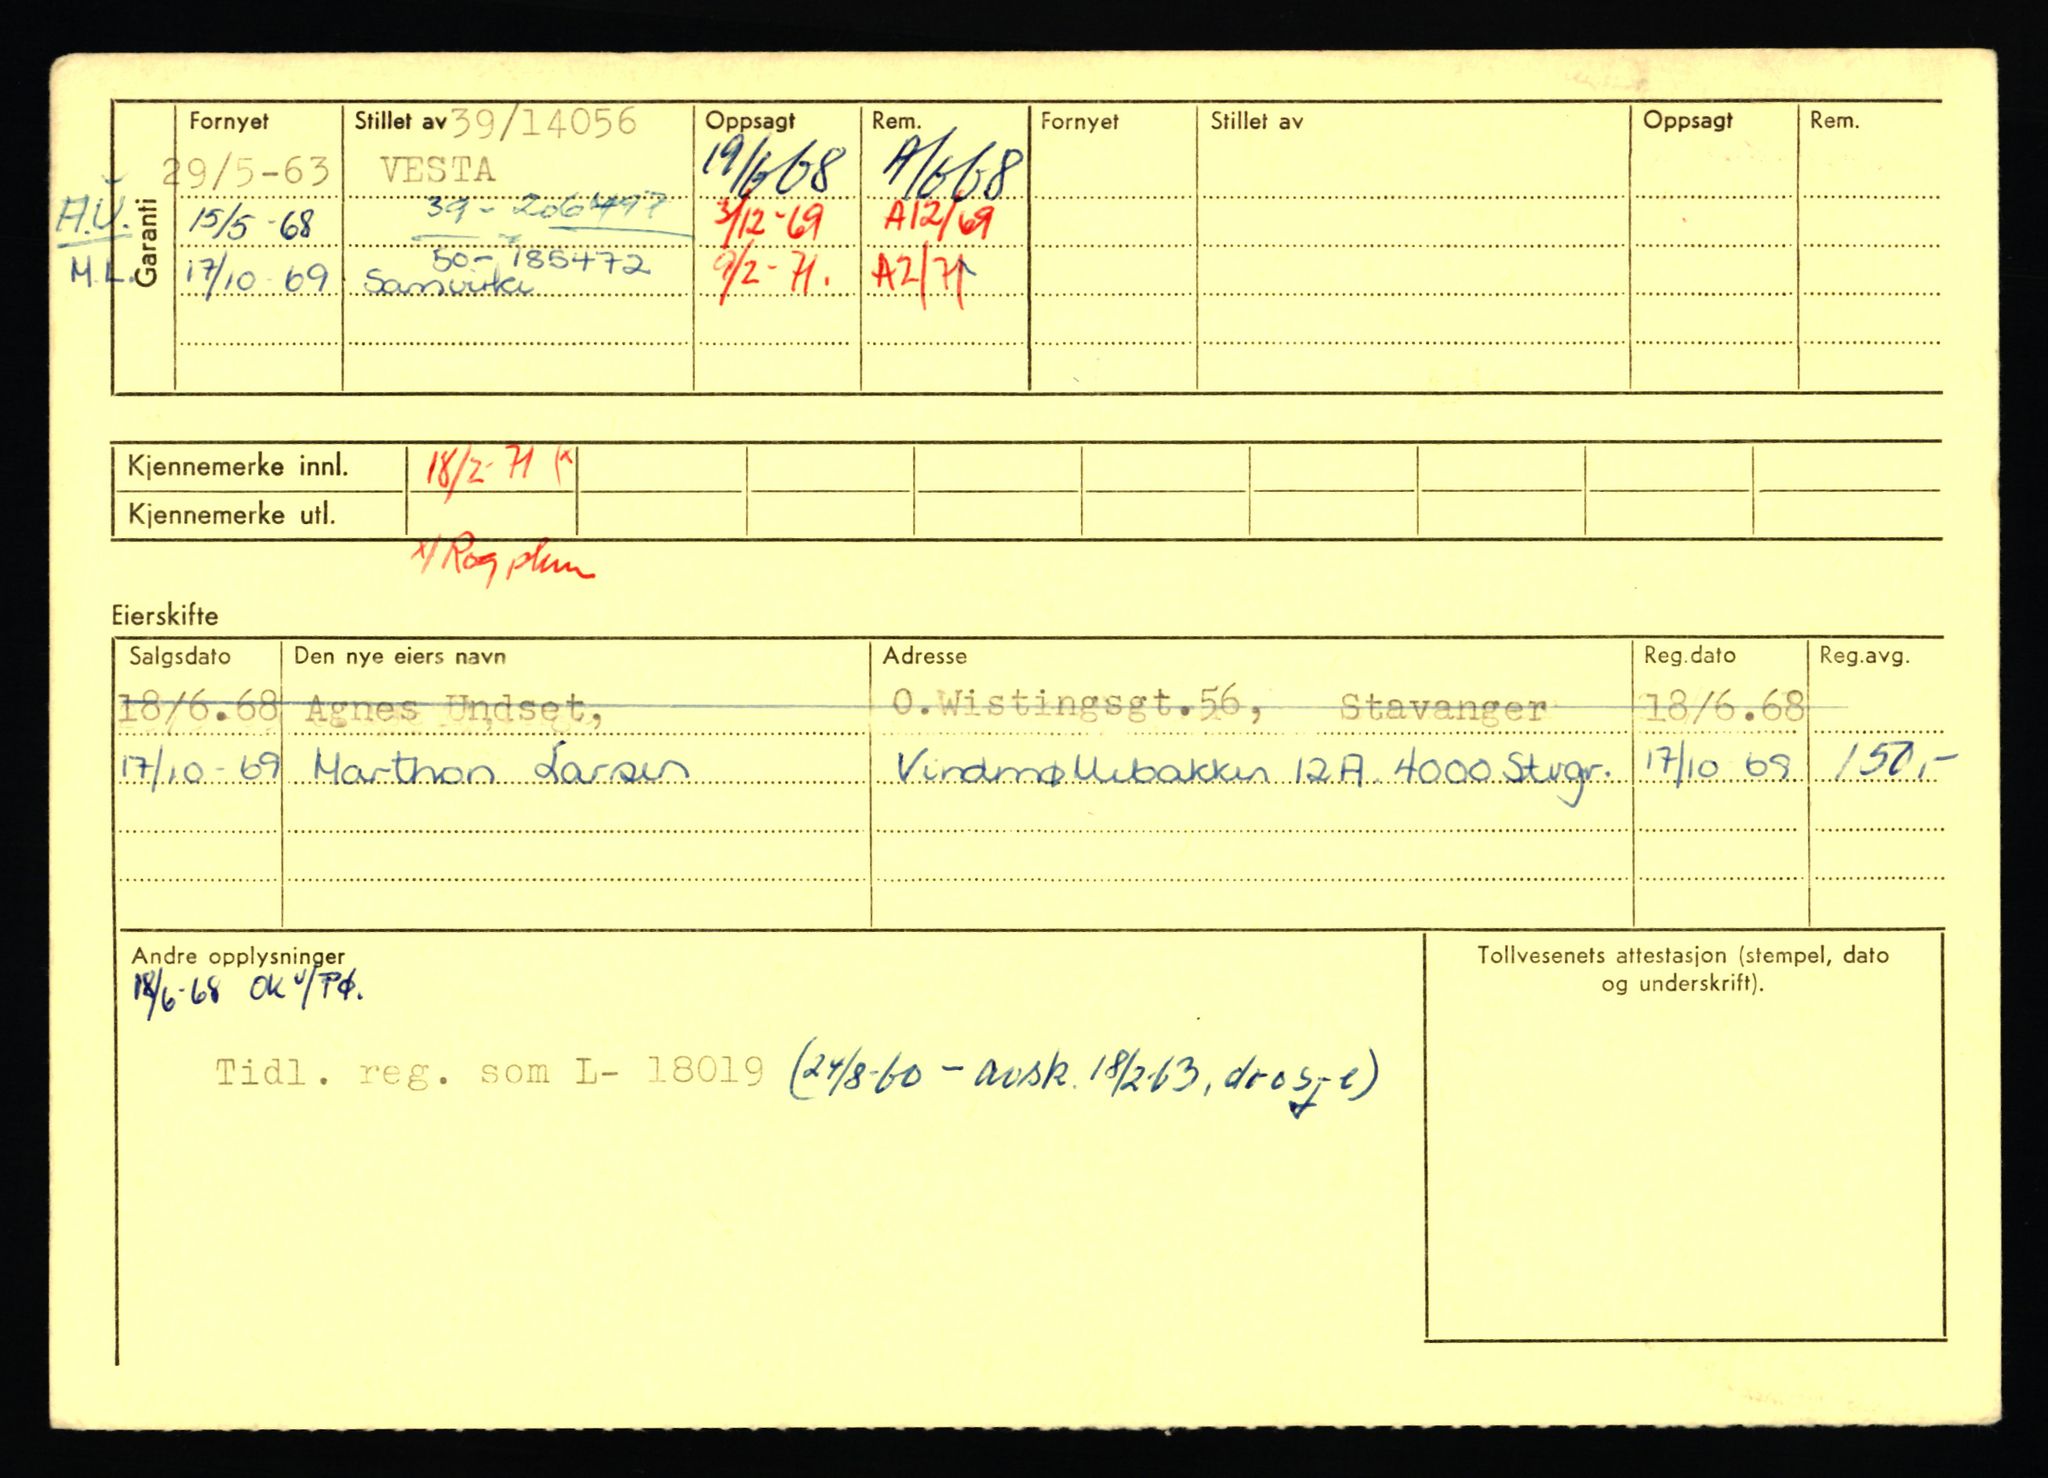 Garanti
Fornyet Stillet av 39/14056 Oppsagt Rem. Fornyet Stillet av Oppsagt Rem.
29/5-63 VESTA 19/6 68 A/6 68
A.U. 15/5-68 39- 3/12-69 A12/69
50-185472
M.L. 17/10-69 Samvirke 9/2-71. A2/71
Kjennemerke innl. 18/2-71 (x
Kjennemerke utl.
x/ Rog
Eierskifte
Salgsdato Den nye eiers navn Adresse Reg.dato Reg.avg.
18/6.68 Agnes Undset, O.Wistingsgt.56, Stavanger 18/6.68
17/10-69 Marthon Larsen Vindmøllebakken 12A. 4000 Stvgr. 17/10 69 150,-
Andre opplysninger
18/6-68 OK v/PØ.
Tollvesenets attestasjon (stempel, dato
og underskrift).
Tidl. reg. som L- 18019 (24/8-60 - avsk. 18/2-63, drosje)